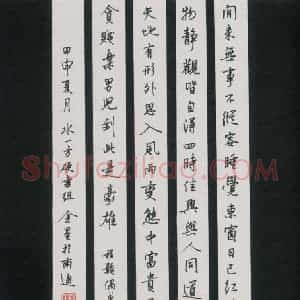 閒來無事不從容睡覺東窗日已紅
物靜觀皆自得四時佳興與人同道
天地有形外思入風雨變態中富貴不
貧賤樂男兒到此是豪雄 程顥偶成
甲申夏月 水一方硬書組 金星於南通
Shufaziliao.com